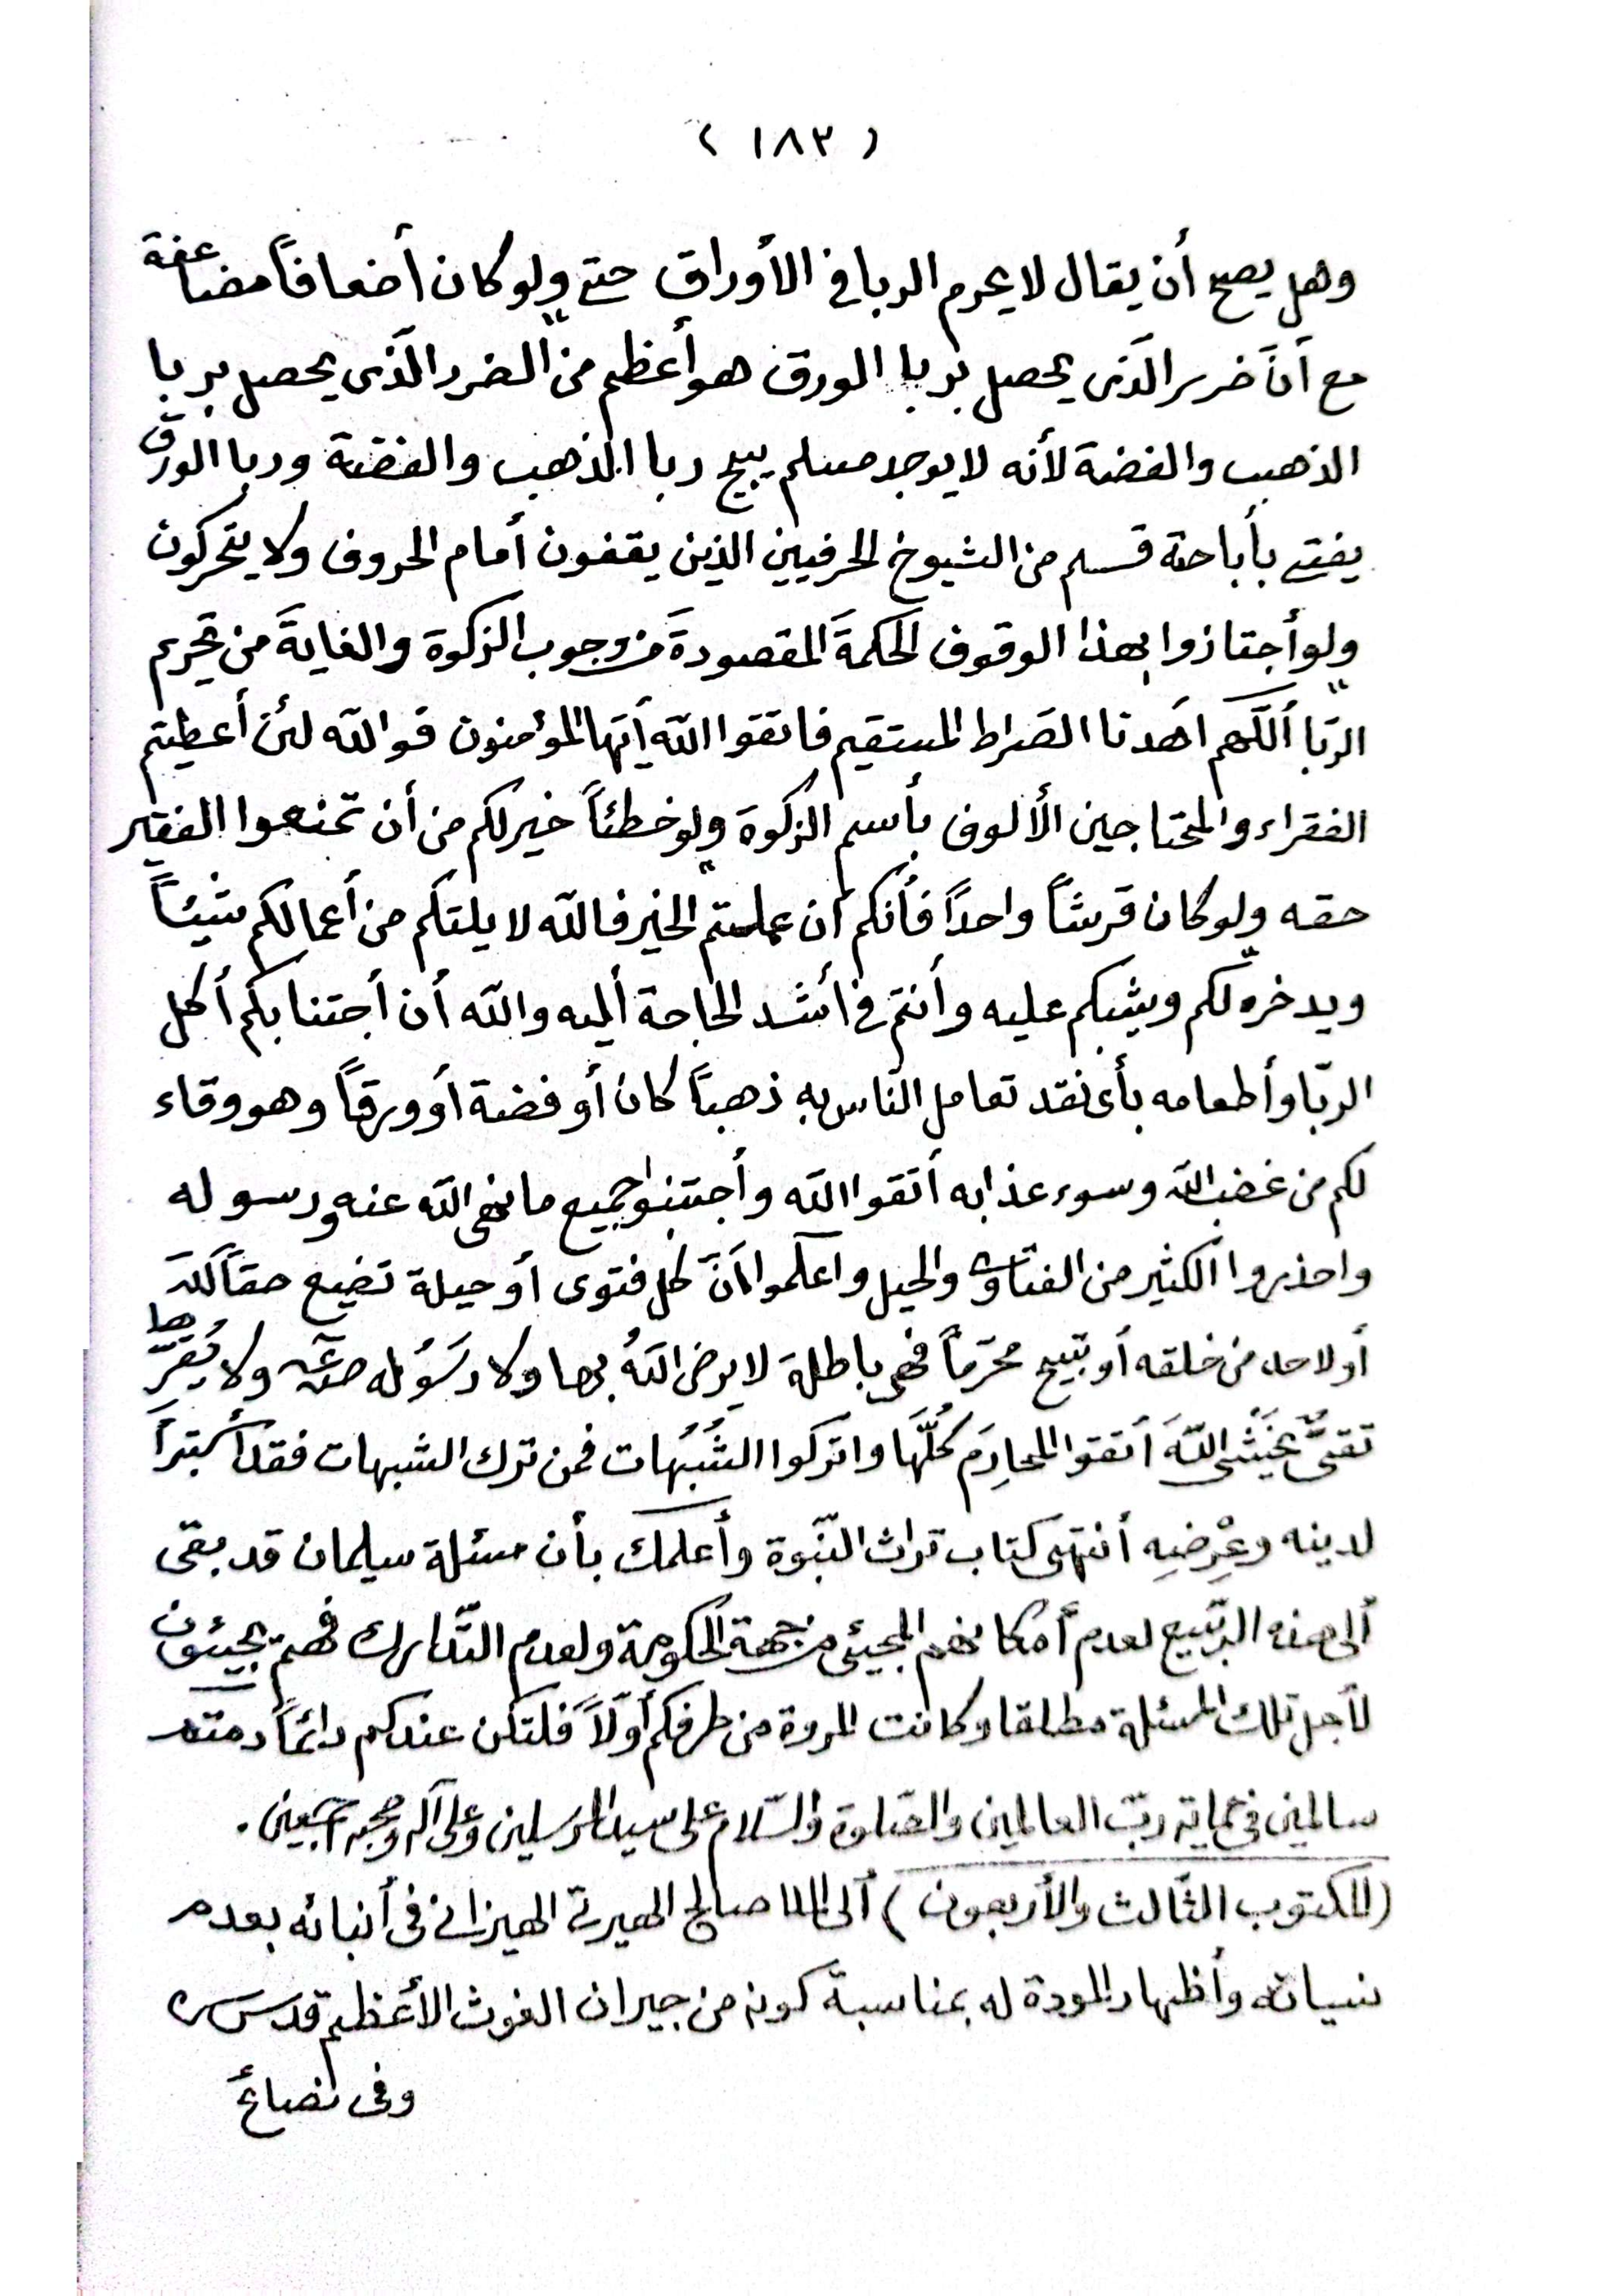 ( ١٨٣ )
وهل يصح أن يقال لا يحرم الربا في الأوراق حتى ولو كان أضعافاً مضاعفة
مع أنَّ ضرر الّذى يحصل بربا الورق هو أعظم من الضرر الّذى يحصل بربا
الذهب والفضة لأنه لا يوجد مسلم يبيح ربا الذهب والفضة وربا الورق
يفتى بأباحة قسم من الشيوخ الحرفيين الذين يقفون أمام الحروف ولا يتحركون
ولو أجتازوا بهذا الوقوف الحكمةَ المقصودةَ من وجوب الزكوة والغايةَ من تحريم
الرّبا أللّهم اهدنا الصّراط المستقيم فاتقوا اللّه أيّها المؤمنون فواللّه لئن أعطيتم
الفقراء والمحتاجين الألوف بأسم الزكوة ولو خطئاً خير لكم من أن تمنعوا الفقير
حقه ولو كان قرشاً واحداً فأنكم أن عملتم الخير فاللّه لا يلتكم من أعمالكم شيئاً
ويدخره لكم ويثبكم عليه وأنتم في أشد الحاجة أليه واللّه أن أجتنابكم أكل
الرّبا وأطعامه بأى نقد تعامل النّاس به ذهباً كان أو فضة أو ورقاً وهو وقاء
لكم من غضب اللّه وسوء عذابه أتقوا اللّه وأجتنبوا جميع ما نهى اللّه عنه ورسوله
واحذروا الكثير من الفتاوى والحيل واعلموا أنَّ كل فتوى أو حيلة تضيع حقاً للّه
أو لاحد من خلقه أو تبيح محرّماً فهى باطلة لا يرضى اللّهُ بها ولا رَسُوله ولا يُقرّها
تقىٌّ يَخْشى اللّهَ أتقوا المحارِمَ كُلَّهَا واتركوا الشُبُهَات فمن ترك الشبهات فقد أستبرأ
لدينه وعِرْضِهِ أنتهى كتاب تراث النّبوة وأعلمك بأن مسئلة سليمان قد بقى
ألى هذه الرّبيع لعدم أمكانهم المجيئ من جهة الحكومة ولعدم التّدارك فهم يجيئون
لأجل تلك المسئلة مطلقا وكانت المروة من طرفكم أوّلاً فلتكن عندكم دائماً دمتم
سالمين في حماية ربّ العالمين والصّلوة والسّلام على سيد المرسلين وعلى آله وصحبه أجمعين.
(المكتوب الثّالث والأربعون) ألى الملا صالح الهيزانى في أنبائه بعدم
نسيانه وأظهار المودة له بمناسبة كونه من جيران الغوث الأعظم قدس سره
وفى نصائح